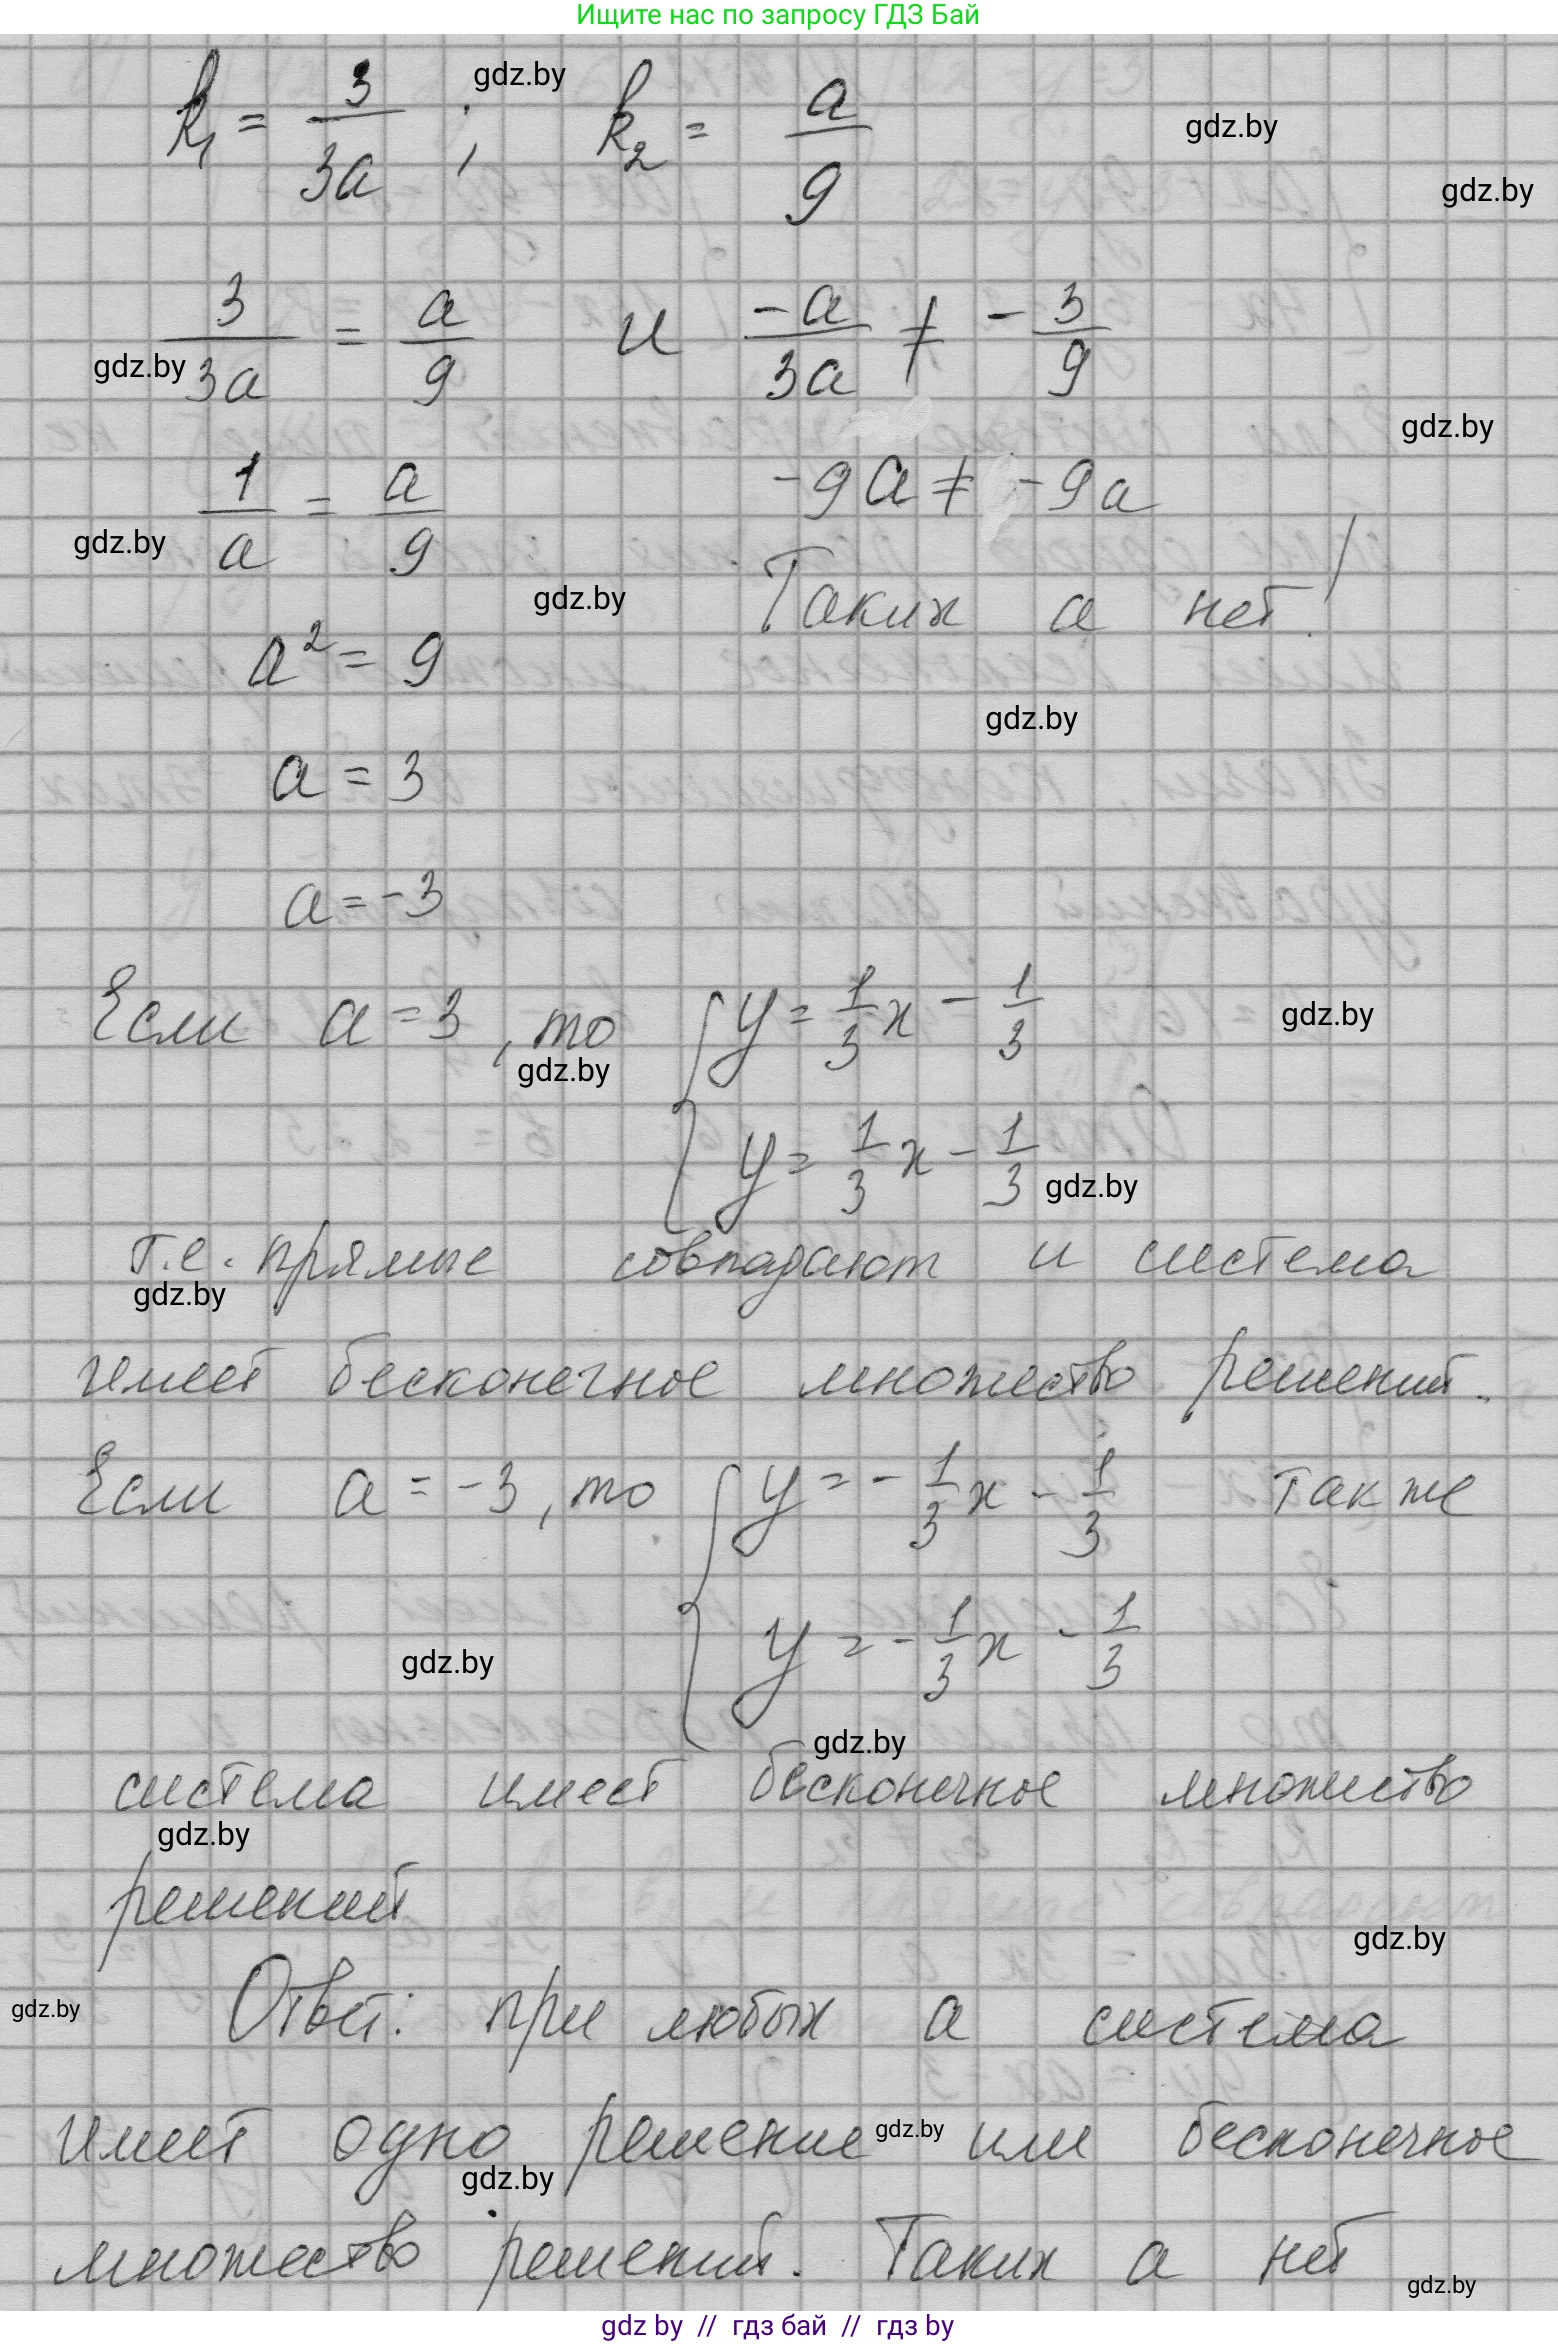 Ищите нас по запросу ГДЗ Бай
k₁ = 3/3a ; k₂ = a/9
gdz.by
gdz.by
gdz.by
3/3a = a/9 и -a/3a ≠ - 3/9
gdz.by
gdz.by
1/a = a/9 -9a ≠ -9a
gdz.by
Таких a нет!
gdz.by
a² = 9
gdz.by
a = 3
a = -3
Если a = 3, то { y = 1/3 x - 1/3
gdz.by
gdz.by
y = 1/3 x - 1/3
gdz.by
т.е. прямые совпадают и система
gdz.by
имеет бесконечное множество решений.
Если a = -3, то { y = - 1/3 x - 1/3 также
y = - 1/3 x - 1/3
gdz.by
gdz.by
система имеет бесконечное множество
gdz.by
решений
gdz.by
Ответ: при любых a система
gdz.by
имеет одно решение или бесконечное
gdz.by
gdz.by
множество решений. Таких a нет
gdz.by
gdz by // гдз бай // гдз by